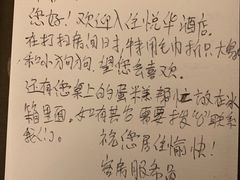 您好！欢迎入住悦华酒店。
在打扫房间时，特用毛巾折只大象
和小狗狗，望您会喜欢。
还有您桌上的蛋米羹帮忙放在冰
箱里面。如有其它需要去按“0”联系
我们。
祝您居住愉快！
客房服务员